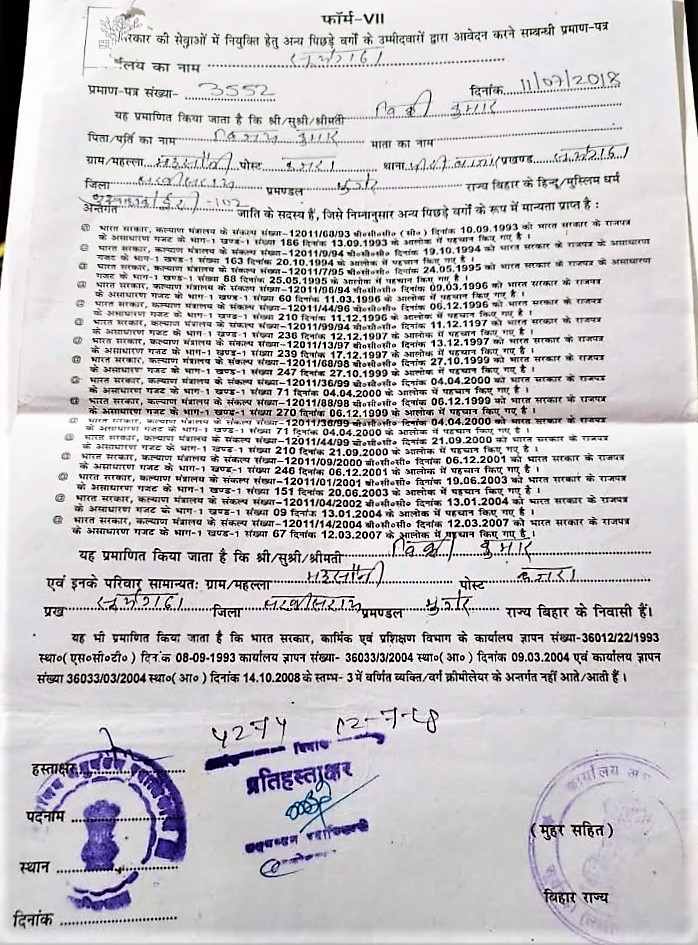 फॉर्म-VII
सरकार की सेवाओं में नियुक्ति हेतु अन्य पिछड़े वर्गों के उम्मीदवारों द्वारा आवेदन करने सम्बन्धी प्रमाण-पत्र
र्यालय का नाम सूर्यगढ़ा
प्रमाण-पत्र संख्या- 3552 दिनांक 11/07/2018
यह प्रमाणित किया जाता है कि श्री/सुश्री/श्रीमती विक्की कुमार
पिता/पति का नाम कुमार माता का नाम
ग्राम/महल्ला पोस्ट कजरा थाना प्रखण्ड सूर्यगढ़ा
जिला लखीसराय प्रमण्डल मुंगेर राज्य बिहार के हिन्दू/मुस्लिम धर्म
अन्तर्गत जाति के सदस्य हैं, जिसे निम्नानुसार अन्य पिछड़े वर्गों के रूप में मान्यता प्राप्त है :
@ भारत सरकार, कल्याण मंत्रालय के संकल्प संख्या-12011/68/93 बी०सी०सी० (सी०) दिनांक 10.09.1993 को भारत सरकार के राजपत्र
के असाधारण गजट के भाग-1 खण्ड-1 संख्या 186 दिनांक 13.09.1993 के आलोक में पहचान किए गए है ।
@ भारत सरकार, कल्याण मंत्रालय के संकल्प संख्या-12011/9/94 बी०सी०सी० दिनांक 19.10.1994 को भारत सरकार के राजपत्र असाधारण
गजट के भाग-1 खण्ड-1 संख्या 163 दिनांक 20.10.1994 के आलोक में पहचान किए गए है ।
@ भारत सरकार, कल्याण मंत्रालय के संकल्प संख्या-12011/7/95 बी०सी०सी० दिनांक 24.05.1995 को भारत सरकार के राजपत्र असाधारण
गजट के भाग-1 खण्ड-1 संख्या 88 दिनांक 25.05.1995 के आलोक में पहचान किए गए है ।
@ भारत सरकार, कल्याण मंत्रालय के संकल्प संख्या-12011/96/94 बी०सी०सी० दिनांक 09.03.1996 को भारत सरकार के राजपत्र
के असाधारण गजट के भाग-1 खण्ड-1 संख्या 60 दिनांक 11.03.1996 के आलोक में पहचान किए गए है ।
@ भारत सरकार, कल्याण मंत्रालय के संकल्प संख्या-12011/44/96 बी०सी०सी० दिनांक 06.12.1996 को भारत सरकार के राजपत्र
के असाधारण गजट के भाग-1 खण्ड-1 संख्या 210 दिनांक 11.12.1996 के आलोक में पहचान किए गए है ।
@ भारत सरकार, कल्याण मंत्रालय के संकल्प संख्या-12011/99/94 बी०सी०सी० दिनांक 11.12.1197 को भारत सरकार के राजपत्र
के असाधारण गजट के भाग-1 खण्ड-1 संख्या 236 दिनांक 12.12.1997 के आलोक में पहचान किए गए है ।
@ भारत सरकार, कल्याण मंत्रालय के संकल्प संख्या-12011/13/97 बी०सी०सी० दिनांक 13.12.1997 को भारत सरकार के राजपत्र
के असाधारण गजट के भाग-1 खण्ड-1 संख्या 239 दिनांक 17.12.1997 के आलोक में पहचान किए गए है ।
@ भारत सरकार, कल्याण मंत्रालय के संकल्प संख्या-12011/68/98 बी०सी०सी० दिनांक 27.10.1999 को भारत सरकार के राजपत्र
के असाधारण गजट के भाग-1 खण्ड-1 संख्या 247 दिनांक 27.10.1999 के आलोक में पहचान किए गए है ।
@ भारत सरकार, कल्याण मंत्रालय के संकल्प संख्या-12011/36/99 बी०सी०सी० दिनांक 04.04.2000 को भारत सरकार के राजपत्र
के असाधारण गजट के भाग-1 खण्ड-1 संख्या 71 दिनांक 04.04.2000 के आलोक में पहचान किए गए है ।
@ भारत सरकार, कल्याण मंत्रालय के संकल्प संख्या-12011/88/98 बी०सी०सी० दिनांक 06.12.1999 को भारत सरकार के राजपत्र
के असाधारण गजट के भाग-1 खण्ड-1 संख्या 270 दिनांक 06.12.1999 के आलोक में पहचान किए गए है ।
@ भारत सरकार, कल्याण मंत्रालय के संकल्प संख्या-12011/36/99 बी०सी०सी० दिनांक 04.04.2000 को भारत सरकार के राजपत्र
के असाधारण गजट के भाग-1 खण्ड-1 संख्या 71 दिनांक 04.04.2000 के आलोक में पहचान किए गए है ।
@ भारत सरकार, कल्याण मंत्रालय के संकल्प संख्या-12011/44/99 बी०सी०सी० दिनांक 21.09.2000 को भारत सरकार के राजपत्र
के असाधारण गजट के भाग-1 खण्ड-1 संख्या 210 दिनांक 21.09.2000 के आलोक में पहचान किए गए है ।
@ भारत सरकार, कल्याण मंत्रालय के संकल्प संख्या-12011/09/2000 बी०सी०सी० दिनांक 06.12.2001 को भारत सरकार के राजपत्र
के असाधारण गजट के भाग-1 खण्ड-1 संख्या 246 दिनांक 06.12.2001 के आलोक में पहचान किए गए है ।
@ भारत सरकार, कल्याण मंत्रालय के संकल्प संख्या-12011/01/2001 बी०सी०सी० दिनांक 19.06.2003 को भारत सरकार के राजपत्र
के असाधारण गजट के भाग-1 खण्ड-1 संख्या 151 दिनांक 20.06.2003 के आलोक में पहचान किए गए है ।
@ भारत सरकार, कल्याण मंत्रालय के संकल्प संख्या-12011/04/2002 बी०सी०सी० दिनांक 13.01.2004 को भारत सरकार के राजपत्र
के असाधारण गजट के भाग-1 खण्ड-1 संख्या 09 दिनांक 13.01.2004 के आलोक में पहचान किए गए है ।
@ भारत सरकार, कल्याण मंत्रालय के संकल्प संख्या-12011/14/2004 बी०सी०सी० दिनांक 12.03.2007 को भारत सरकार के राजपत्र
के असाधारण गजट के भाग-1 खण्ड-1 संख्या 67 दिनांक 12.03.2007 के आलोक में पहचान किए गए है ।
यह प्रमाणित किया जाता है कि श्री/सुश्री/श्रीमती विक्की कुमार
एवं इनके परिवार सामान्यतः ग्राम/महल्ला पोस्ट कजरा
प्रख सूर्यगढ़ा जिला लखीसराय प्रमण्डल मुंगेर राज्य बिहार के निवासी हैं।
यह भी प्रमाणित किया जाता है कि भारत सरकार, कार्मिक एवं प्रशिक्षण विभाग के कार्यालय ज्ञापन संख्या-36012/22/1993
स्था०(एस०सी०टी०) दिनांक 08-09-1993 कार्यालय ज्ञापन संख्या- 36033/3/2004 स्था०(आ०) दिनांक 09.03.2004 एवं कार्यालय ज्ञापन
संख्या 36033/03/2004 स्था०(आ०) दिनांक 14.10.2008 के स्तम्भ- 3 में वर्णित व्यक्ति/वर्ग क्रीमीलेयर के अन्तर्गत नहीं आते/आती हैं ।
4274 12-7-18
दिनांक
हस्ताक्षर
प्रतिहस्ताक्षर
पदनाम
(मुहर सहित)
स्थान
बिहार राज्य
दिनांक
कार्यालय